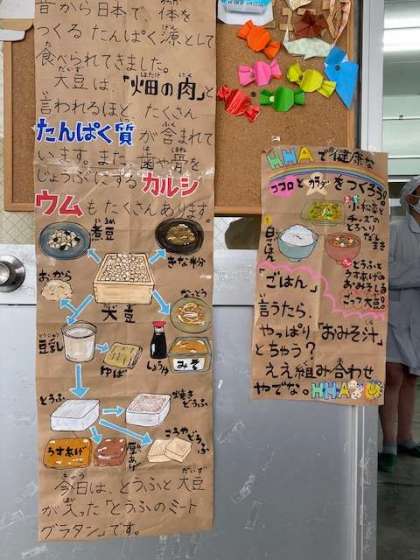 昔から日本で、体を
つくる たんぱく源として
食べられてきました。
大豆は、「畑の肉」と
言われるほど たくさん
たんぱく質 が含まれて
います。また、歯や骨を
じょうぶにする カルシ
ウム も たくさん あります。
煮豆
きな粉
おから
大豆
なっとう
豆乳
ゆば
しょうゆ
みそ
とうふ
焼きどうふ
うすあげ
厚あげ
こうやどうふ
今日は、とうふと大豆
が入った「とうふのミート
グラタン」です。
HHAで健康な
ココロとカラダをつくろう!
白ごはん
とうふと
うすあげの
おみそしる
「ごはん」
言うたら、
やっぱり「おみそ汁」
とちゃう?
ええ組み合わせ
やでな。HHA